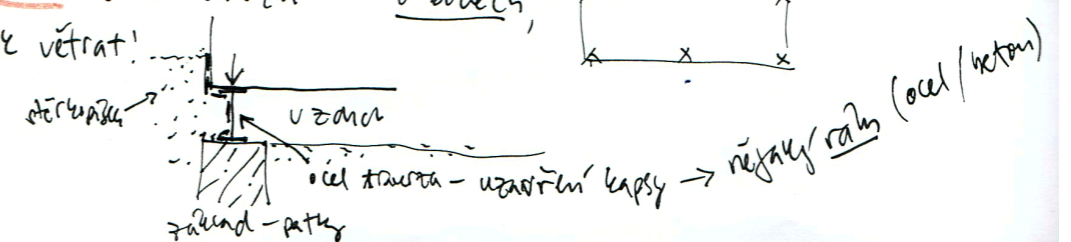 větrat!
štěrkopísku
vzduch
ocel traverza – uzavření kapsy → nějaký rám (ocel/beton)
základ – patky